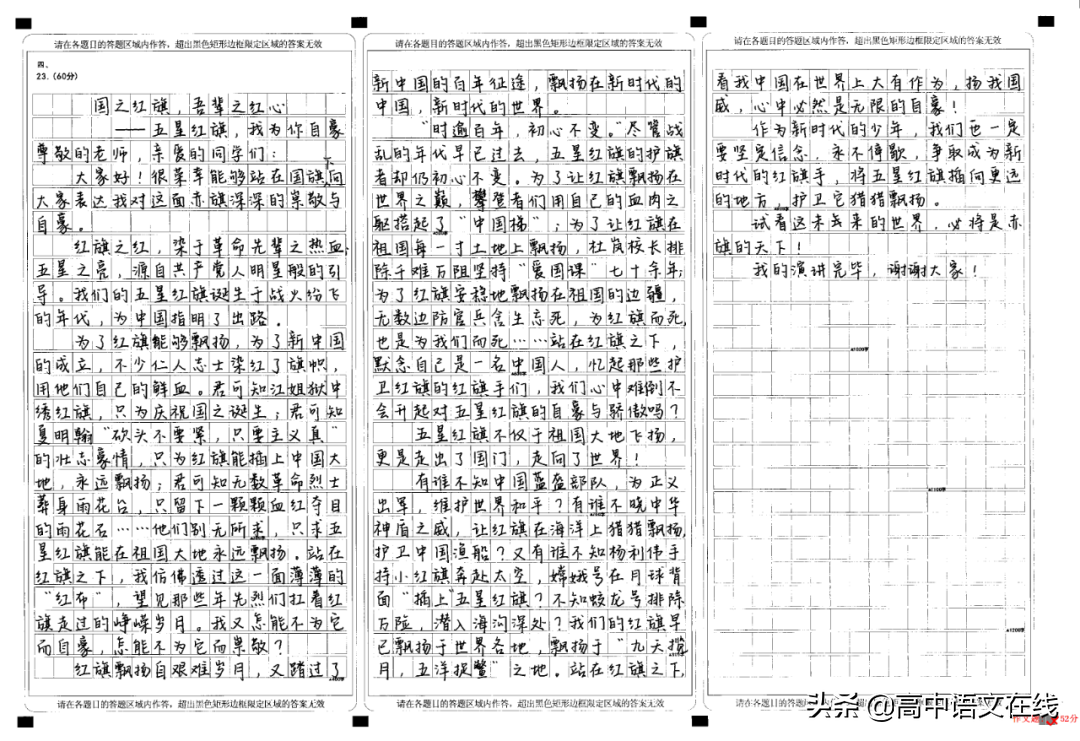 请在各题目的答题区域内作答，超出黑色矩形边框限定区域的答案无效
四、
23.（60分）
国之红旗，吾辈之红心
——五星红旗，我为你自豪
尊敬的老师，亲爱的同学们：
大家好！很荣幸能够站在国旗下向
大家表达我对这面赤旗深深的崇敬与
自豪。
红旗之红，染于革命先辈之热血；
五星之亮，源自共产党人明星般的引
导。我们的五星红旗诞生于战火纷飞
的年代，为中国指明了出路。
为了红旗能够飘扬，为了新中国
的成立，不少仁人志士染红了旗帜，
用他们自己的鲜血。君可知江姐狱中
绣红旗，只为庆祝国之诞生；君可知
夏明翰“砍头不要紧，只要主义真”
的壮志豪情，只为红旗能插上中国大
地，永远飘扬；君可知无数革命烈士
葬身雨花台，只留下一颗颗血红夺目
的雨花石……他们别无所求，只求五
星红旗能在祖国大地永远飘扬。站在
红旗之下，我仿佛透过这一面薄薄的
“红布”，望见那些年先烈们扛着红
旗走过的峥嵘岁月。我又怎能不为它
而自豪，怎能不为它而崇敬？
红旗飘扬自艰难岁月，又踏过了
请在各题目的答题区域内作答，超出黑色矩形边框限定区域的答案无效
请在各题目的答题区域内作答，超出黑色矩形边框限定区域的答案无效
新中国的百年征途，飘扬在新时代的
中国，新时代的世界。
“时逾百年，初心不变。”尽管战
乱的年代早已过去，五星红旗的护旗
者却仍初心不变。为了让红旗飘扬在
世界之巅，攀登者们用自己的血肉之
躯搭起了“中国梯”；为了让红旗在
祖国每一寸土地上飘扬，杜岚校长排
除千难万阻坚持“爱国课”七十余年；
为了红旗安稳地飘扬在祖国的边疆，
无数边防官兵舍生忘死，为红旗而死，
也是为我们而死……站在红旗之下，
默念自己是一名中国人，忆起那些护
卫红旗的红旗手们，我们心中难倒不
会升起对五星红旗的自豪与骄傲吗？
五星红旗不仅于祖国大地飞扬，
更是走出了国门，走向了世界！
有谁不知中国蓝盔部队，为正义
出军，维护世界和平？有谁不晓中华
神盾之威，让红旗在海洋上猎猎飘扬，
护卫中国渔船？又有谁不知杨利伟手
持小红旗奔赴太空，嫦娥号在月球背
面“插上”五星红旗？不知蛟龙号排除
万险，潜入海沟深处？我们的红旗早
已飘扬于世界各地，飘扬于“九天揽
月，五洋捉鳖”之地。站在红旗之下，
请在各题目的答题区域内作答，超出黑色矩形边框限定区域的答案无效
请在各题目的答题区域内作答，超出黑色矩形边框限定区域的答案无效
看我中国在世界上大有作为，扬我国
威，心中必然是无限的自豪！
作为新时代的少年，我们也一定
要坚定信念，永不停歇，争取成为新
时代的红旗手，将五星红旗插向更远
的地方，护卫它猎猎飘扬。
试看这未来的世界，必将是赤
旗的天下！
我的演讲完毕，谢谢大家！
请在各题目的答题区域内作答，超出黑色矩形边框限定区域的答案无效
头条 @高中语文在线
52分